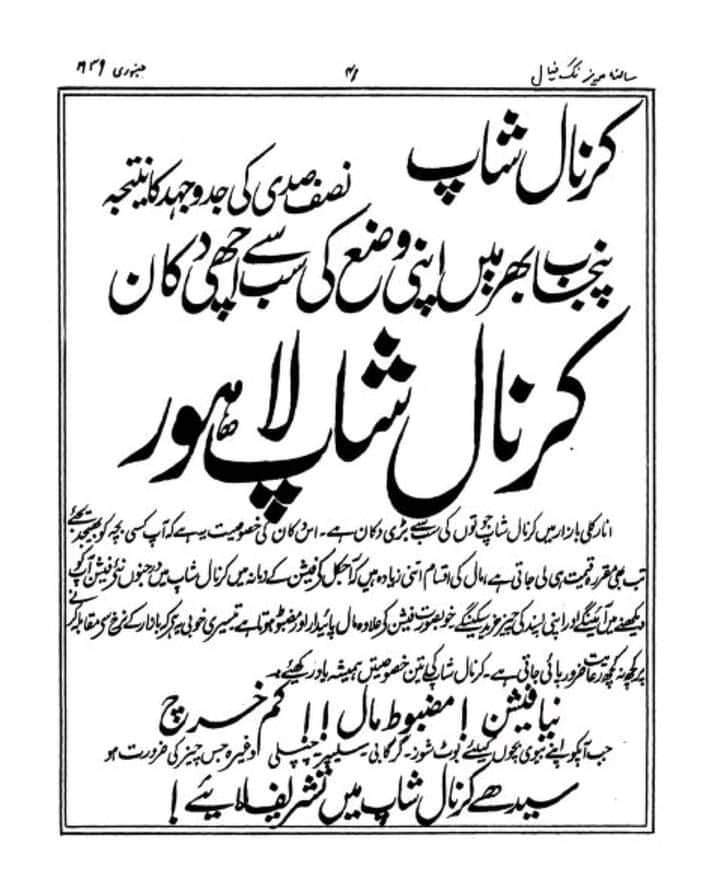 سالنامہ نیرنگ خیال ۴۱ جنوری ۱۹۳۶
کرنال شاپ
نصف صدی کی جدوجہد کا نتیجہ
پنجاب بھر میں اپنی وضع کی سب سے اچھی دکان
کرنال شاپ لاہور
انارکلی بازار میں کرنال شاپ جوتوں کی سب سے بڑی دکان ہے۔ اس دکان کی خصوصیت یہ ہے کہ آپ کسی بچہ کو بھیجدیجئے
تب بھی مقررہ قیمت ہی لی جاتی ہے، مال کی اقسام اتنی زیادہ ہیں کہ آجکل کے فیشن کے زمانہ میں کرنال شاپ میں درجنوں نئے فیشن آپکو
دیکھنے میں آئینگے اور اپنی پسند کی چیز خرید سکینگے۔ خوبصورت فیشن کے علاوہ مال پائیدار اور مضبوط ہوتا ہے تیسری خوبی یہ ہے کہ بازار کے نرخ سے مقابلہ کرنے
پر کچھ نہ کچھ رعایت ضرور پائی جاتی ہے۔ کرنال شاپ کی تین خصوصیتیں ہمیشہ یاد رکھیئے۔
نیا فیشن ! مضبوط مال !! کم خرچ
جب آپکو اپنے بیوی بچوں کیلئے بوٹ شوز۔ گرگابی سلیپر چپلی وغیرہ جس چیز کی ضرورت ہو
سیدھے کرنال شاپ میں تشریف لائیے !